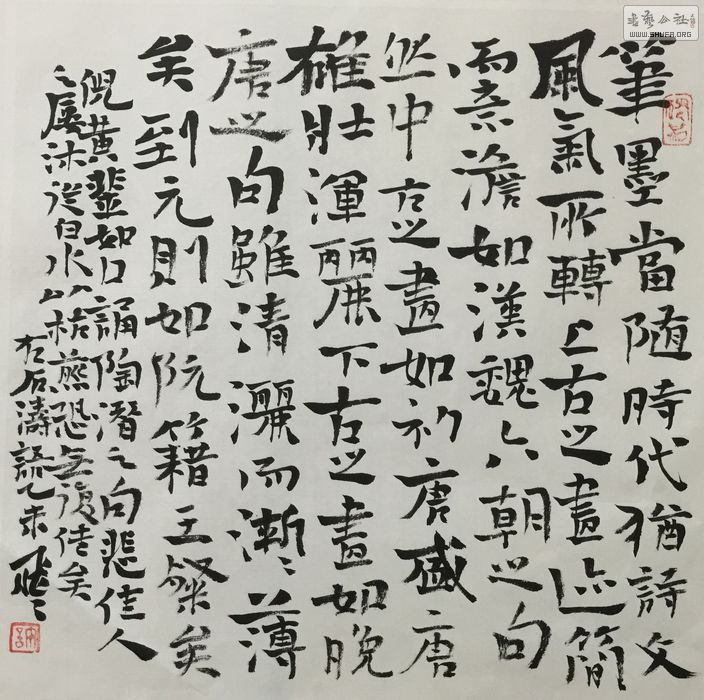 筆墨當隨時代猶詩文
風氣所轉上古之畫迹簡
而意澹如漢魏六朝之句
然中古之畫如初唐盛唐
雄壯渾麗下古之畫如晚
唐之句雖清灑而漸〻薄
矣到元則如阮籍王粲矣
倪黃輩如口誦陶潛之句悲佳人
之屢沐從白水以枯煎恐無復佳矣
右石濤語乙未
書藝公社
WWW.SHUFA.ORG